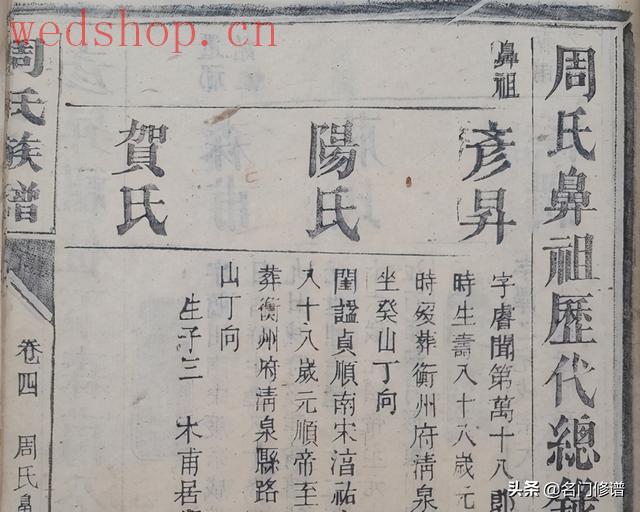 wedshop.cn
周氏鼻祖歷代總
鼻祖
彥昇
字睿聞第萬十八郎
時生壽八十八歲元
時歿葬衡州府清泉
坐癸山丁向
陽氏
閨謚貞順南宋淳祐
八十八歲元順帝至
葬衡州府清泉縣路
山丁向
賀氏
生子三 木甫居
周氏族譜
卷四 周氏鼻
头条 @名门修谱